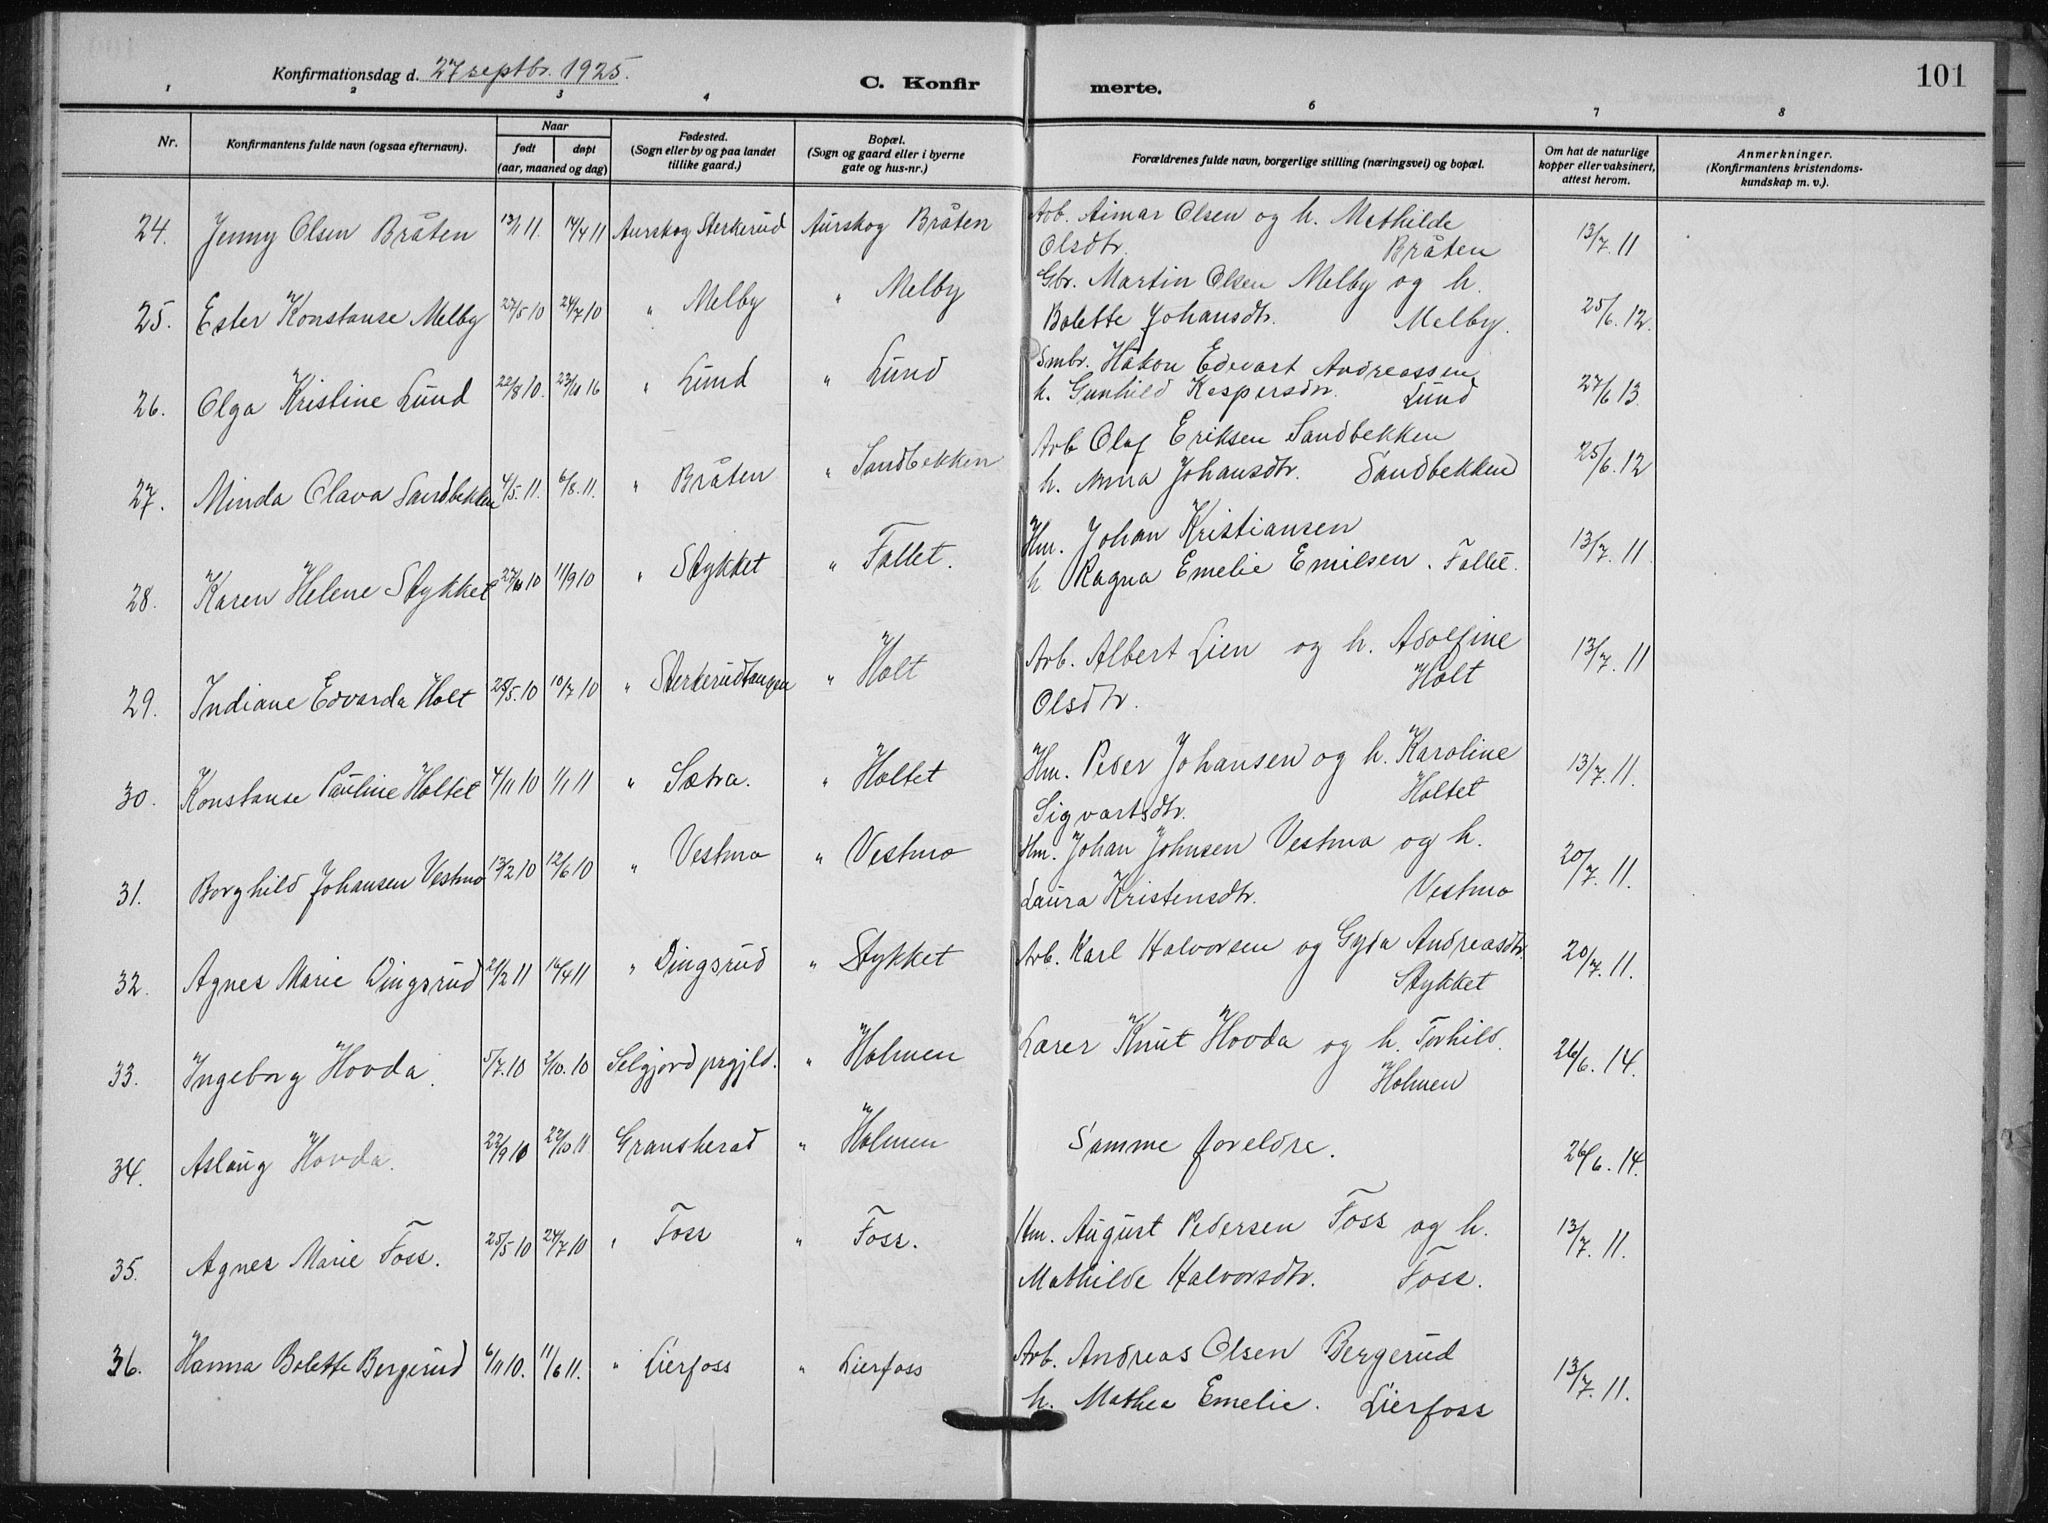 101
Konfirmationsdag d. 27 septbr. 1925.
C. Konfir merte.
1 2 3 4 6 7 8
Nr. Konfirmantens fulde navn (ogsaa efternavn). Naar født døpt (aar, maaned og dag) Fødested. (Sogn eller by og paa landet tillike gaard.) Bopæl. (Sogn og gaard eller i byerne gate og hus-nr.) Forældrenes fulde navn, borgerlige stilling (næringsvei) og bopæl. Om hat de naturlige kopper eller vaksinert, attest herom. Anmerkninger. (Konfirmantens kristendoms-kundskap m. v.).
24. Jenny Olsen Bråten 13/1 11. 17/4 11 Aurskog Sterkerud Aurskog Bråten Arb. Aimar Olsen og h. Mathilde 13/7. 11
Olsdtr. Bråten
25. Ester Konstanse Melby 27/5 10 24/7 10 " Melby " Melby Gbr. Martin Olsen Melby og h. 25/6. 12.
Bolette Johansdtr. Melby.
26. Olga Kristine Lund 22/8 10. 23/10 16 " Lund " Lund Smbr. Håkon Edvart Andreassen 27/6 13.
h. Gunhild Kaspersdtr. Lund
27. Minda Olava Sandbekken 4/5. 11. 6/8. 11. " Bråten " Sandbekken Arb Olaf Eriksen Sandbekken 25/6. 12
h. Anna Johansdtr. Sandbekken
28. Karen Helene Stykket 10 11/9 10 " Stykket " Fallet. Hm. Johan Kristiansen 13/7. 11
h Ragna Emelie Emilsen. Fallet.
29. Indiane Edvarda Holt 25/5. 10 10/7 10 " Sterkerudtangen " Holt Arb. Albert Lien og h. Adolfine 13/7. 11
Olsdtr. Holt
30. Konstanse Pauline Holtet 4/11 10 1/1 11 " Sætra. " Holtet Hm. Peder Johansen og h. Karoline 13/7. 11.
Sigvartsdtr. Holtet
31. Borghild Johansen Vestmo 13/2 10 12/6 10 " Vestmo " Vestmo Hm. Johan Johnsen Vestmo og h. 20/7. 11.
Laura Kristensdtr. Vestmo
32. Agnes Marie Dingsrud 21/2 11 17/4 11 " Dingsrud " Stykket Arb. Karl Halvorsen og Gyda Andreasdtr. 20/7. 11.
Stykket
33. Ingeborg Hovda. 5/7. 10 2/10. 10 Selgjord prgjld. " Holmen Lærer Knut Hovda og h. Torhild. 26/6. 14.
Holmen
34. Aslaug Hovda. 22/9 10 22/10 11. Gransherad " Holmen Samme foreldre. 26/6. 14.
35. Agnes Marie Foss. 25/5 10 24/7 10 " Foss " Foss. Hm. August Pedersen Foss og h. 13/7. 11.
Mathilde Halvorsdtr. Foss.
36. Hanna Bolette Bergerud 6/11 10. 11/6 11. " Lierfoss " Lierfoss Arb. Andreas Olsen Bergerud 13/7. 11.
h. Mathea Emelie. Lierfoss